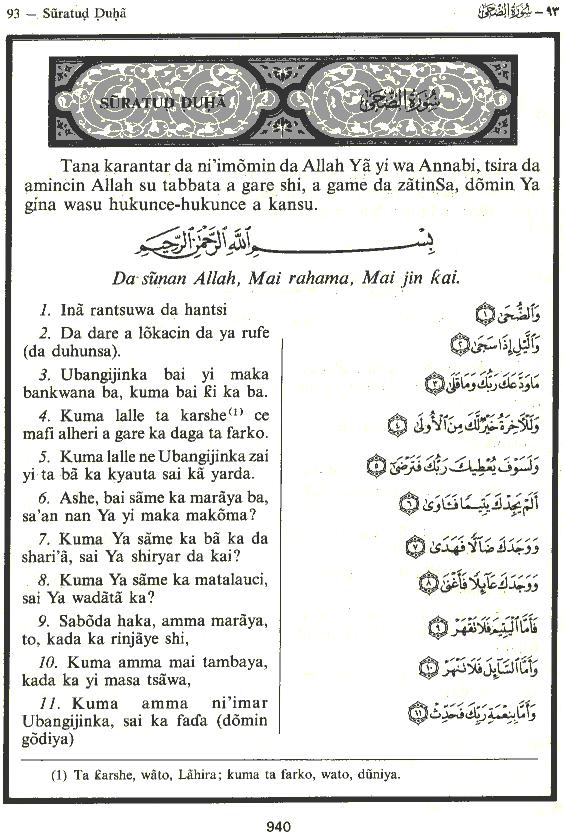 93 — Sūratuḍ Ḍuḥã
٩٣ – سُورَةُ الضُّحَىٰ
SŪRATUḌ ḌUḤÃ
سُورَةُ الضُّحَىٰ
Tana karantar da ni'imõmin da Allah Yã yi wa Annabi, tsira da
amincin Allah su tabbata a gare shi, a game da zãtinSa, dõmin Ya
gina wasu hukunce-hukunce a kansu.
بِسْمِ اللَّهِ الرَّحْمَٰنِ الرَّحِيمِ
Da sũnan Allah, Mai rahama, Mai jin ƙai.
1. Inã rantsuwa da hantsi
وَالضُّحَىٰ ١
2. Da dare a lõkacin da ya rufe
(da duhunsa).
وَاللَّيْلِ إِذَا سَجَىٰ ٢
3. Ubangijinka bai yi maka
bankwana ba, kuma bai ƙi ka ba.
مَا وَدَّعَكَ رَبُّكَ وَمَا قَلَىٰ ٣
4. Kuma lalle ta ƙarshe(1) ce
mafi alheri a gare ka daga ta farko.
وَلَلْآخِرَةُ خَيْرٌ لَّكَ مِنَ الْأُولَىٰ ٤
5. Kuma lalle ne Ubangijinka zai
yi ta bã ka kyauta sai kã yarda.
وَلَسَوْفَ يُعْطِيكَ رَبُّكَ فَتَرْضَىٰ ٥
6. Ashe, bai sãme ka marãya ba,
sa'an nan Ya yi maka makõma?
أَلَمْ يَجِدْكَ يَتِيمًا فَآوَىٰ ٦
7. Kuma Ya sãme ka bã ka da
shari'ã, sai Ya shiryar da kai?
وَوَجَدَكَ ضَالًّا فَهَدَىٰ ٧
8. Kuma Ya sãme ka matalauci,
sai Ya wadãtã ka?
وَوَجَدَكَ عَائِلًا فَأَغْنَىٰ ٨
9. Sabõda haka, amma marãya,
to, kada ka rinjãye shi,
فَأَمَّا الْيَتِيمَ فَلَا تَقْهَرْ ٩
10. Kuma amma mai tambaya,
kada ka yi masa tsãwa,
وَأَمَّا السَّائِلَ فَلَا تَنْهَرْ ١٠
11. Kuma amma ni'imar
Ubangijinka, sai ka faɗa (dõmin
gõdiya)
وَأَمَّا بِنِعْمَةِ رَبِّكَ فَحَدِّثْ ١١
(1) Ta ƙarshe, wãto, Lãhira; kuma ta farko, wato, dũniya.
940